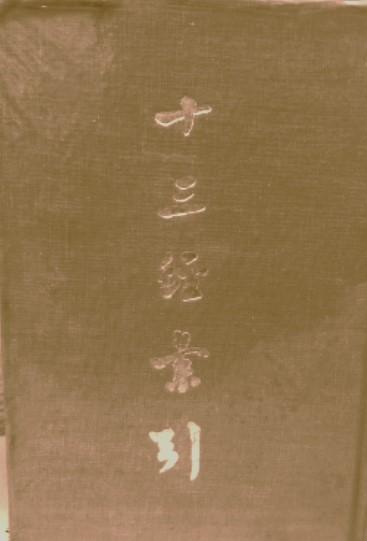 十三經索引